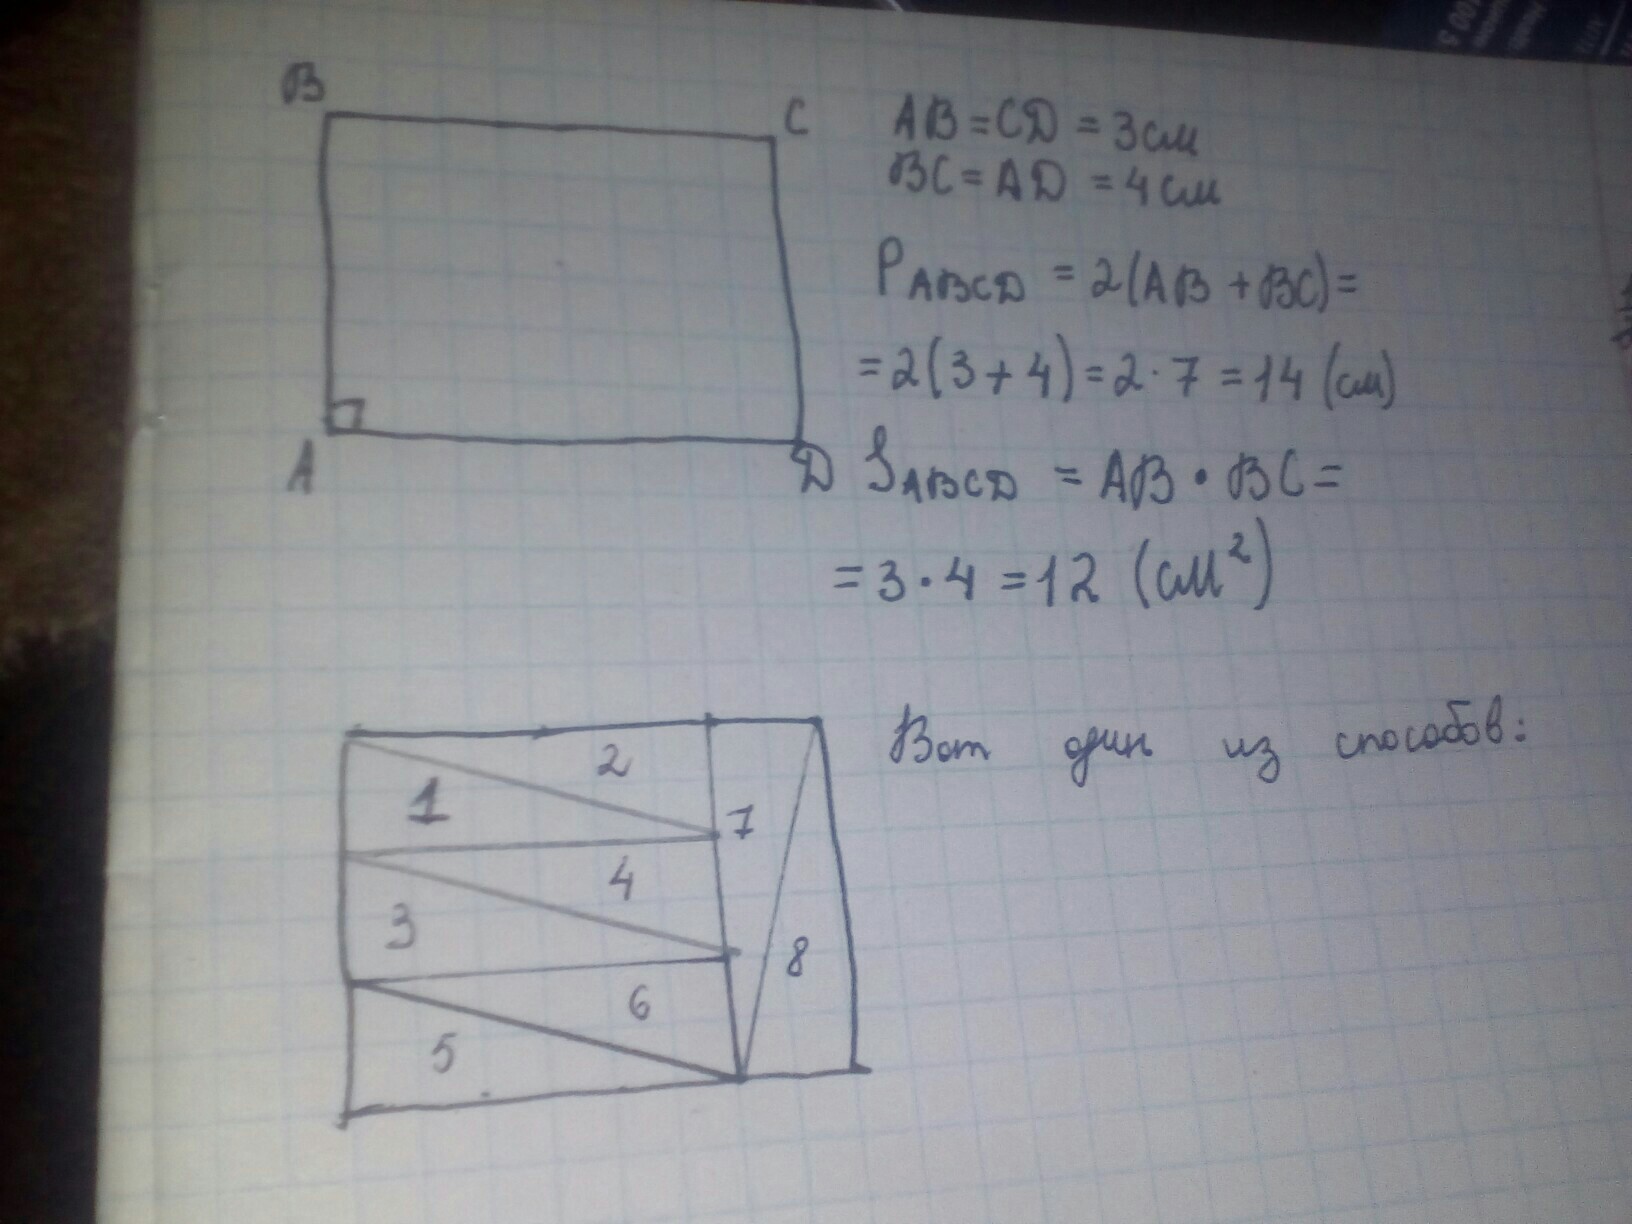 B
C
AB = CD = 3 см
BC = AD = 4 см
P ABCD = 2(AB + BC) =
= 2(3 + 4) = 2 · 7 = 14 (см)
A
D
S ABCD = AB · BC =
= 3 · 4 = 12 (см²)
Вот один из способов:
2
1
7
4
3
8
6
5